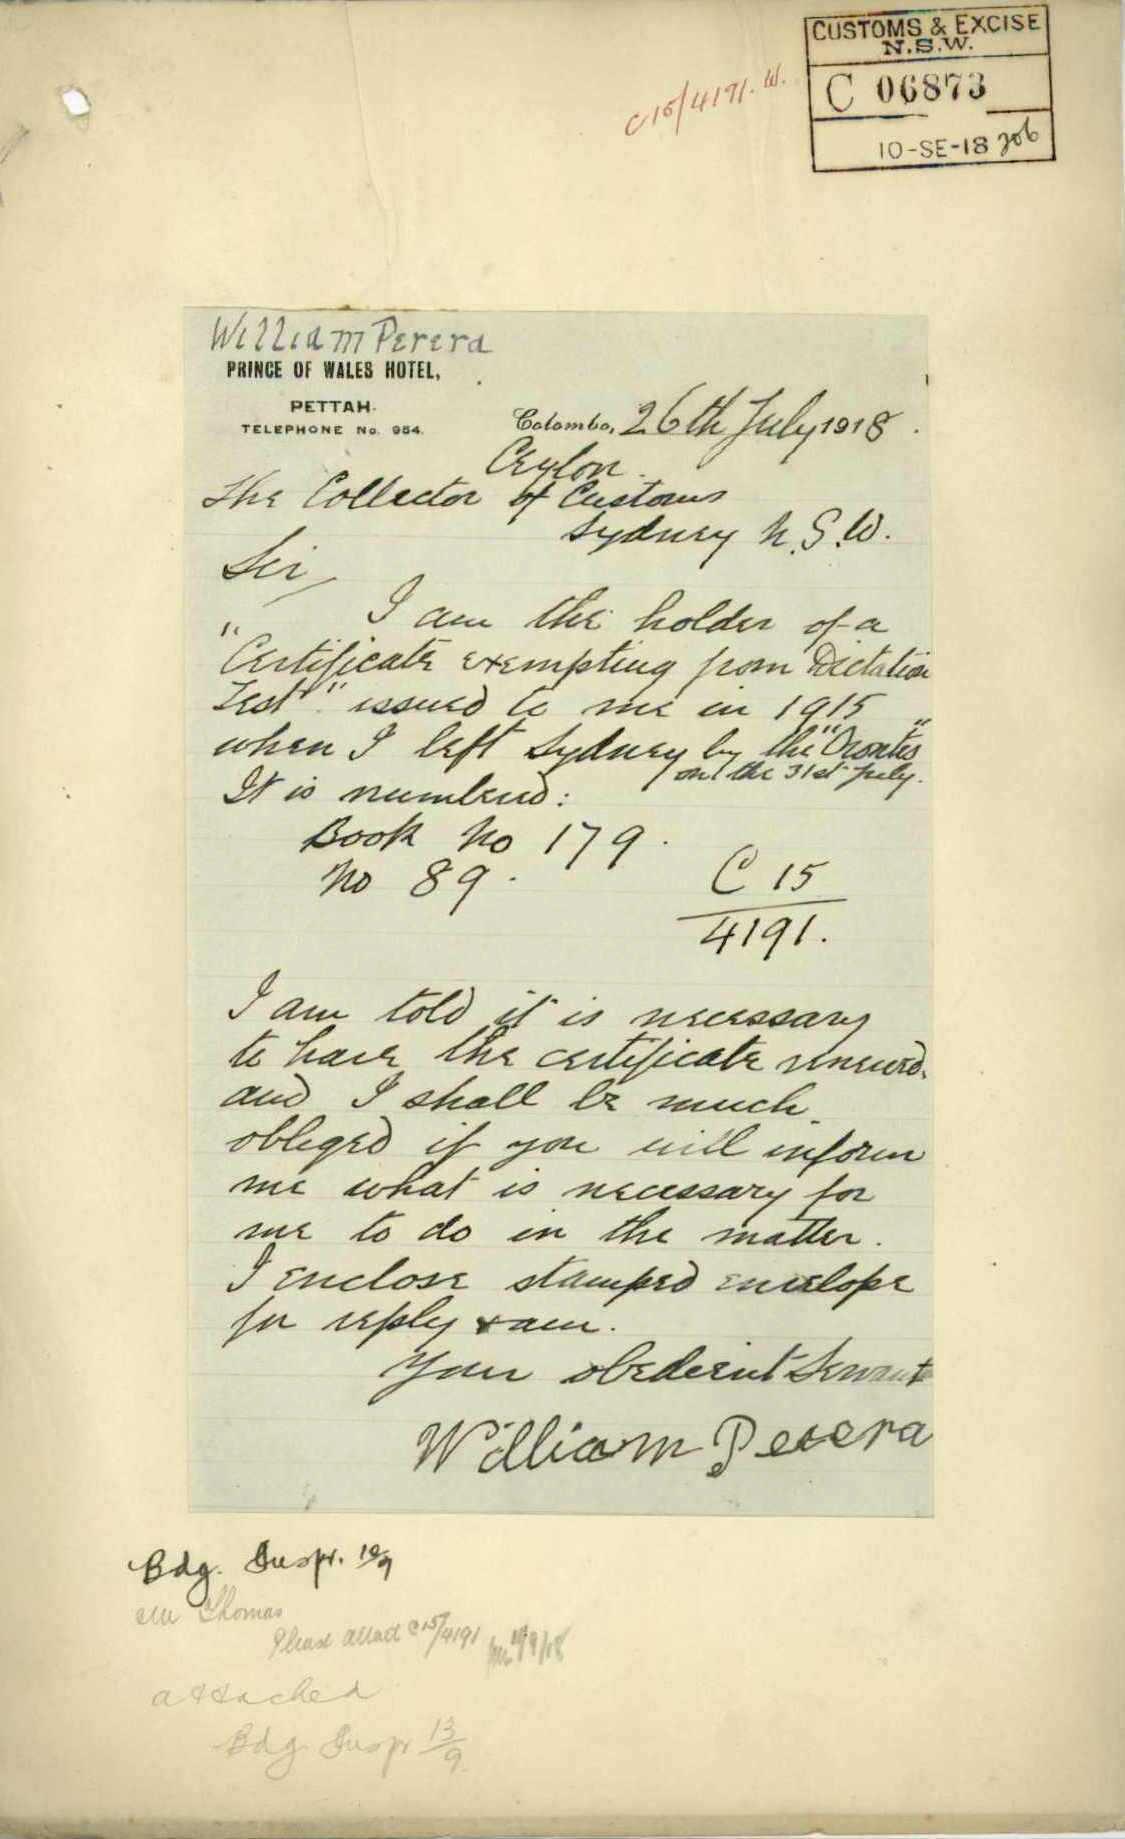 CUSTOMS & EXCISE
N.S.W.
C 06873
10-SE-18
C15/4191. W.
William Perera
PRINCE OF WALES HOTEL,
PETTAH.
TELEPHONE No. 954.
Colombo, 26th July 1918.
Ceylon.
The Collector of Customs
Sydney N.S.W.
Sir,
I am the holder of a
"Certificate exempting from Dictation
Test" issued to me in 1915
when I left Sydney by the "Orontes"
on the 31st July.
It is numbered:
Book No 179.
No 89.
C 15
4191.
I am told it is necessary
to have the certificate renewed.
and I shall be much
obliged if you will inform
me what is necessary for
me to do in the matter.
I enclose stamped envelope
for reply & am.
Your obedient Servant
William Perera
Bdg. Inspr. 10/9
Mr Thomas
Please attach C15/4191
attached
Bdg Inspr 13/9